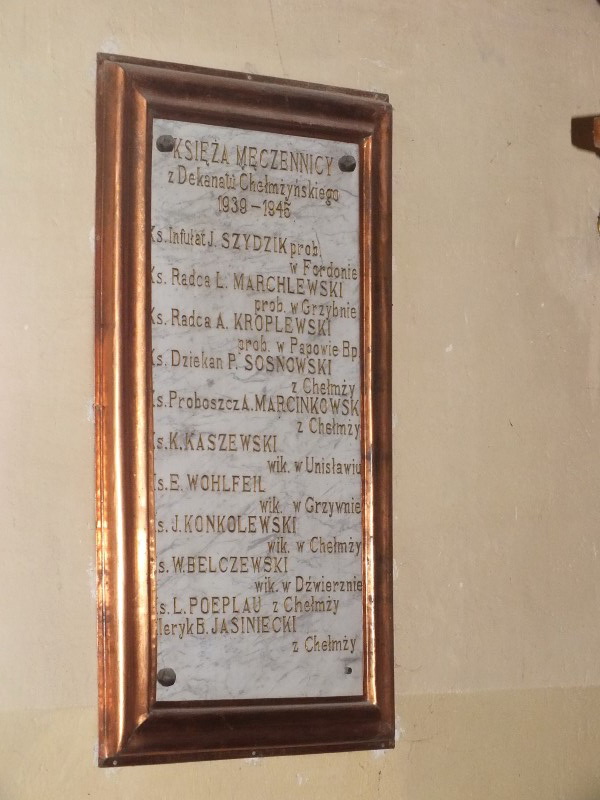 KSIĘŻA MĘCZENNICY
z Dekanatu Chełmżyńskiego
1939-1945
Ks. Infułat J. SZYDZIK prob.
w Fordonie
Ks. Radca L. MARCHLEWSKI
prob. w Grzybnie
Ks. Radca A. KROPLEWSKI
prob. w Papowie Bp.
Ks. Dziekan P. SOSNOWSKI
z Chełmży
Ks. Proboszcz A. MARCINKOWSK
z Chełmży
Ks. K. KASZEWSKI
wik. w Unisławiu
Ks. E. WOHLFEIL
wik. w Grzywnie
Ks. J. KONKOLEWSKI
wik. w Chełmży
Ks. W. BELCZEWSKI
wik. w Dźwierznie
Ks. L. POEPLAU z Chełmży
Kleryk B. JASINIECKI
z Chełmży